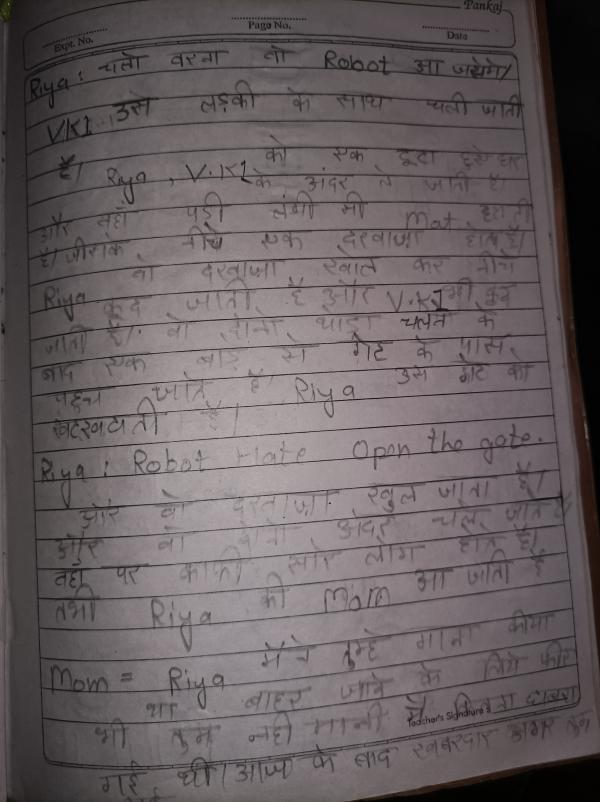 Pankaj
Expt. No.
Page No.
Date
Riya : चलो वरना वो Robot आ जायेगे/
V.K1 उस लड़की के साथ चली जाती
है। Riya, V.K1 को एक टूटा हुसे घर
के अंदर ले जाती है।
और वहाँ पड़ी लंबी सी Mat हटाती
है। जीसके नीचे एक दरवाजा होता है।
Riya वो दरवाजा खोल कर नीचे
कूद जाती है और V.K1 भी कूद
जाती है। वो दोनो थोड़ा चलने के
बाद एक बड़े से गेट के पास
पहुच जाते है। Riya उस गेट को
खटखटाती है।
Riya : Robot Hate Open the gate.
और वो दरवाजा खुल जाता है।
और वो दोनो अंदर चले जाते है
वहा पर काफी सारे लोग होते है।
तभी Riya की Mom आ जाती है
Mom = Riya मैंने तुम्हे माना कीया
था बाहर जाने के लिये फीर
भी तुम नही मानी मैं कितना घबरा
Teacher's Signature
गई थी। आज के बाद खबरदार अगर तुम